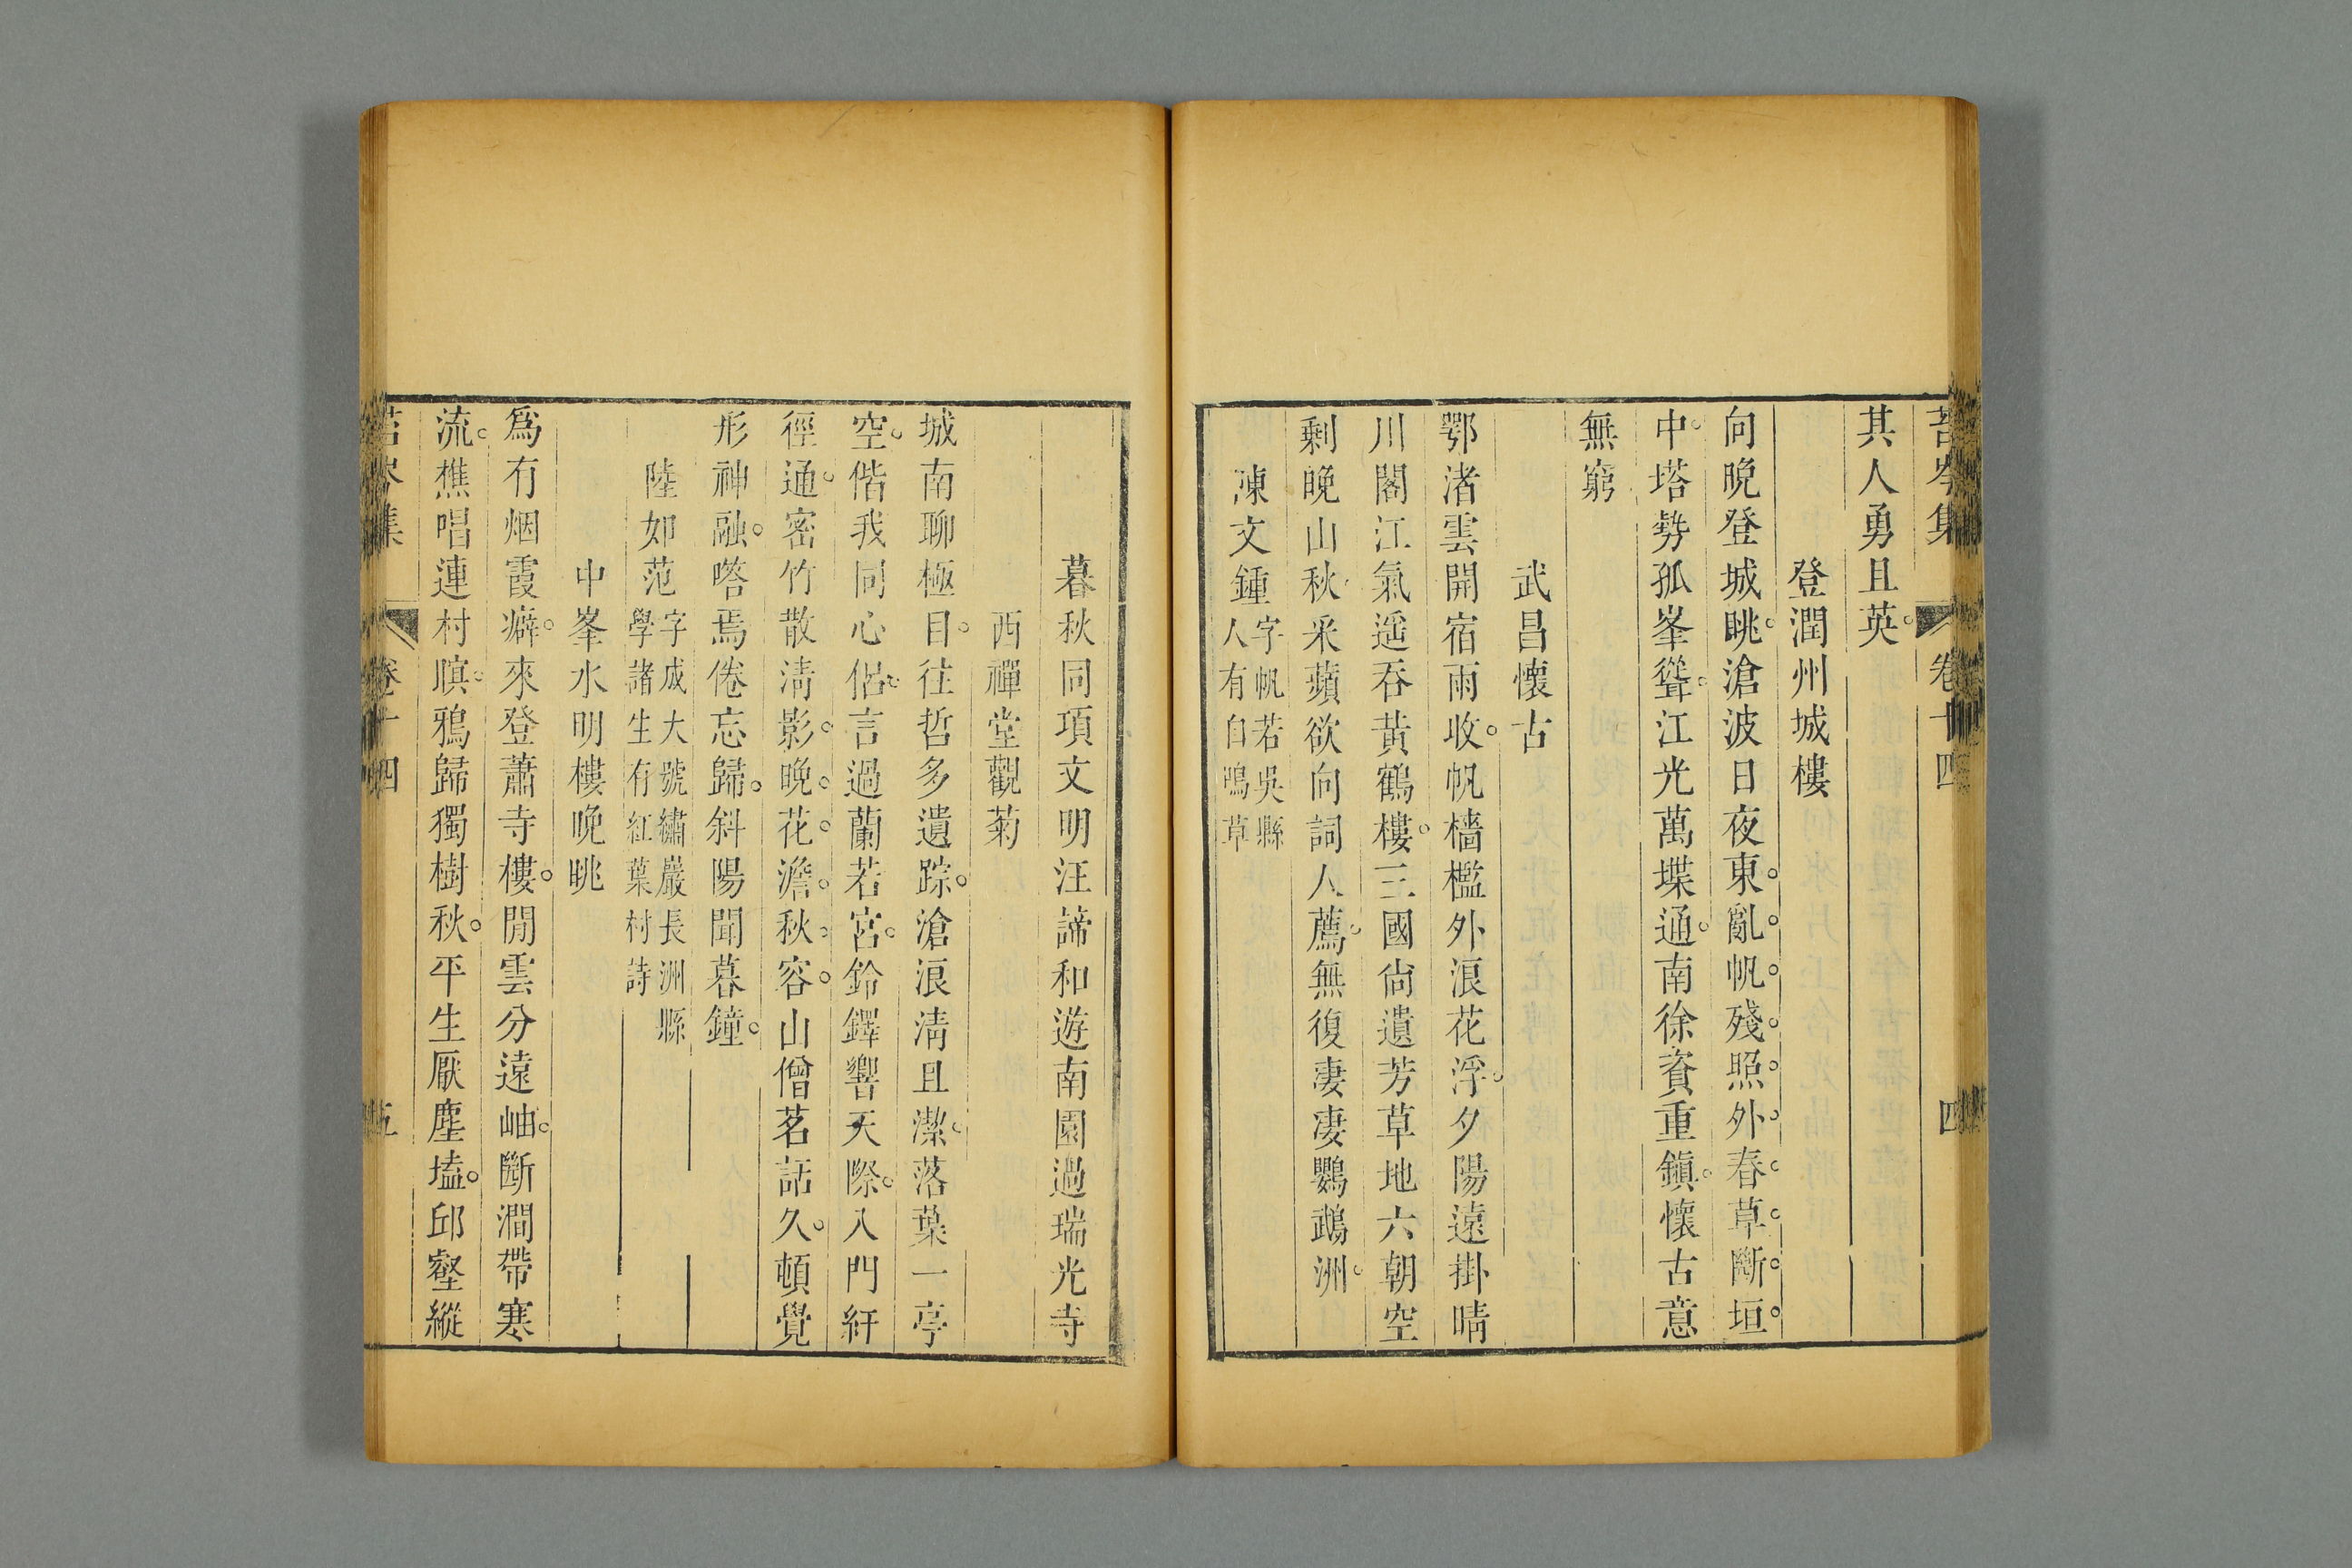 苔岑集 卷十四 四
其人勇且英
登潤州城樓
向晚登城眺滄波日夜東亂帆殘照外春草斷垣
中塔勢孤峯聳江光萬堞通南徐資重鎭懷古意
無窮
武昌懷古
鄂渚雲開宿雨收帆檣檻外浪花浮夕陽遠掛晴
川閣江氣遥吞黃鶴樓三國尙遺芳草地六朝空
剩晚山秋采蘋欲向詞人薦無復淒淒鸚鵡洲
陳文鍾字帆若吳縣
人有自鳴草
暮秋同項文明汪諦和遊南園過瑞光寺
西禪堂觀菊
城南聊極目往哲多遺踪滄浪淸且潔落葉一亭
空偕我同心侶言過蘭若宮鈴鐸響天際入門紆
徑通密竹散淸影晚花澹秋容山僧茗話久頓覺
形神融嗒焉倦忘歸斜陽聞暮鐘
陸如范字成大號繡巖長洲縣
學諸生有紅葉村詩
中峯水明樓晚眺
爲有烟霞癖來登蕭寺樓閒雲分遠岫斷澗帶寒
流樵唱連村暝鴉歸獨樹秋平生厭塵壒邱壑縱
苔岑集 卷十四 五